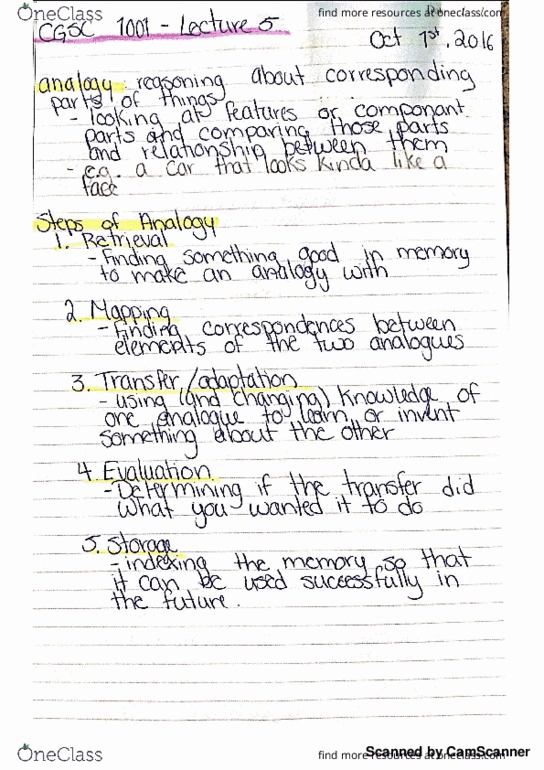 OneClass
find more resources at oneclass.com
CGSC 1001 - Lecture 5
Oct 1st, 2016
analogy: reasoning about corresponding
parts of things
- looking at features or componant
parts and comparing those parts
and relationship between them
- e.g. a car that looks kinda like a
face
Steps of Analogy
1. Retrieval
- Finding something good in memory
to make an analogy with
2. Mapping
- Finding correspondences between
elements of the two analogues
3. Transfer/adaptation
- using (and changing) knowledge of
one analogue to learn or invent
something about the other
4. Evaluation
- Determining if the transfer did
what you wanted it to do
5. Storage
- indexing the memory so that
it can be used successfully in
the future.
OneClass
find more resources at oneclass.com
Scanned by CamScanner